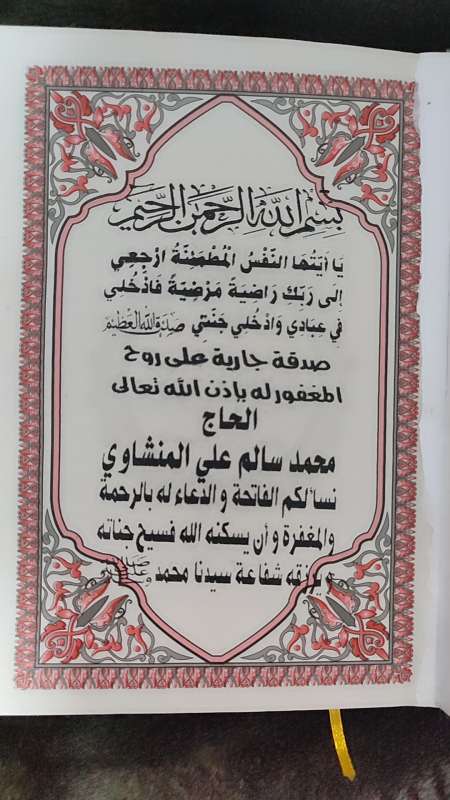 بسم الله الرحمن الرحيم
يَا أَيَّتُهَا النَّفْسُ الْمُطْمَئِنَّةُ ارْجِعِي
إِلَى رَبِّكِ رَاضِيَةً مَرْضِيَّةً فَادْخُلِي
فِي عِبَادِي وَادْخُلِي جَنَّتِي صدق الله العظيم
صدقة جارية على روح
المغفور له بإذن الله تعالى
الحاج
محمد سالم علي المنشاوي
نسألكم الفاتحة و الدعاء له بالرحمة
والمغفرة و أن يسكنه الله فسيح جناته
و يرزقه شفاعة سيدنا محمد ﷺ